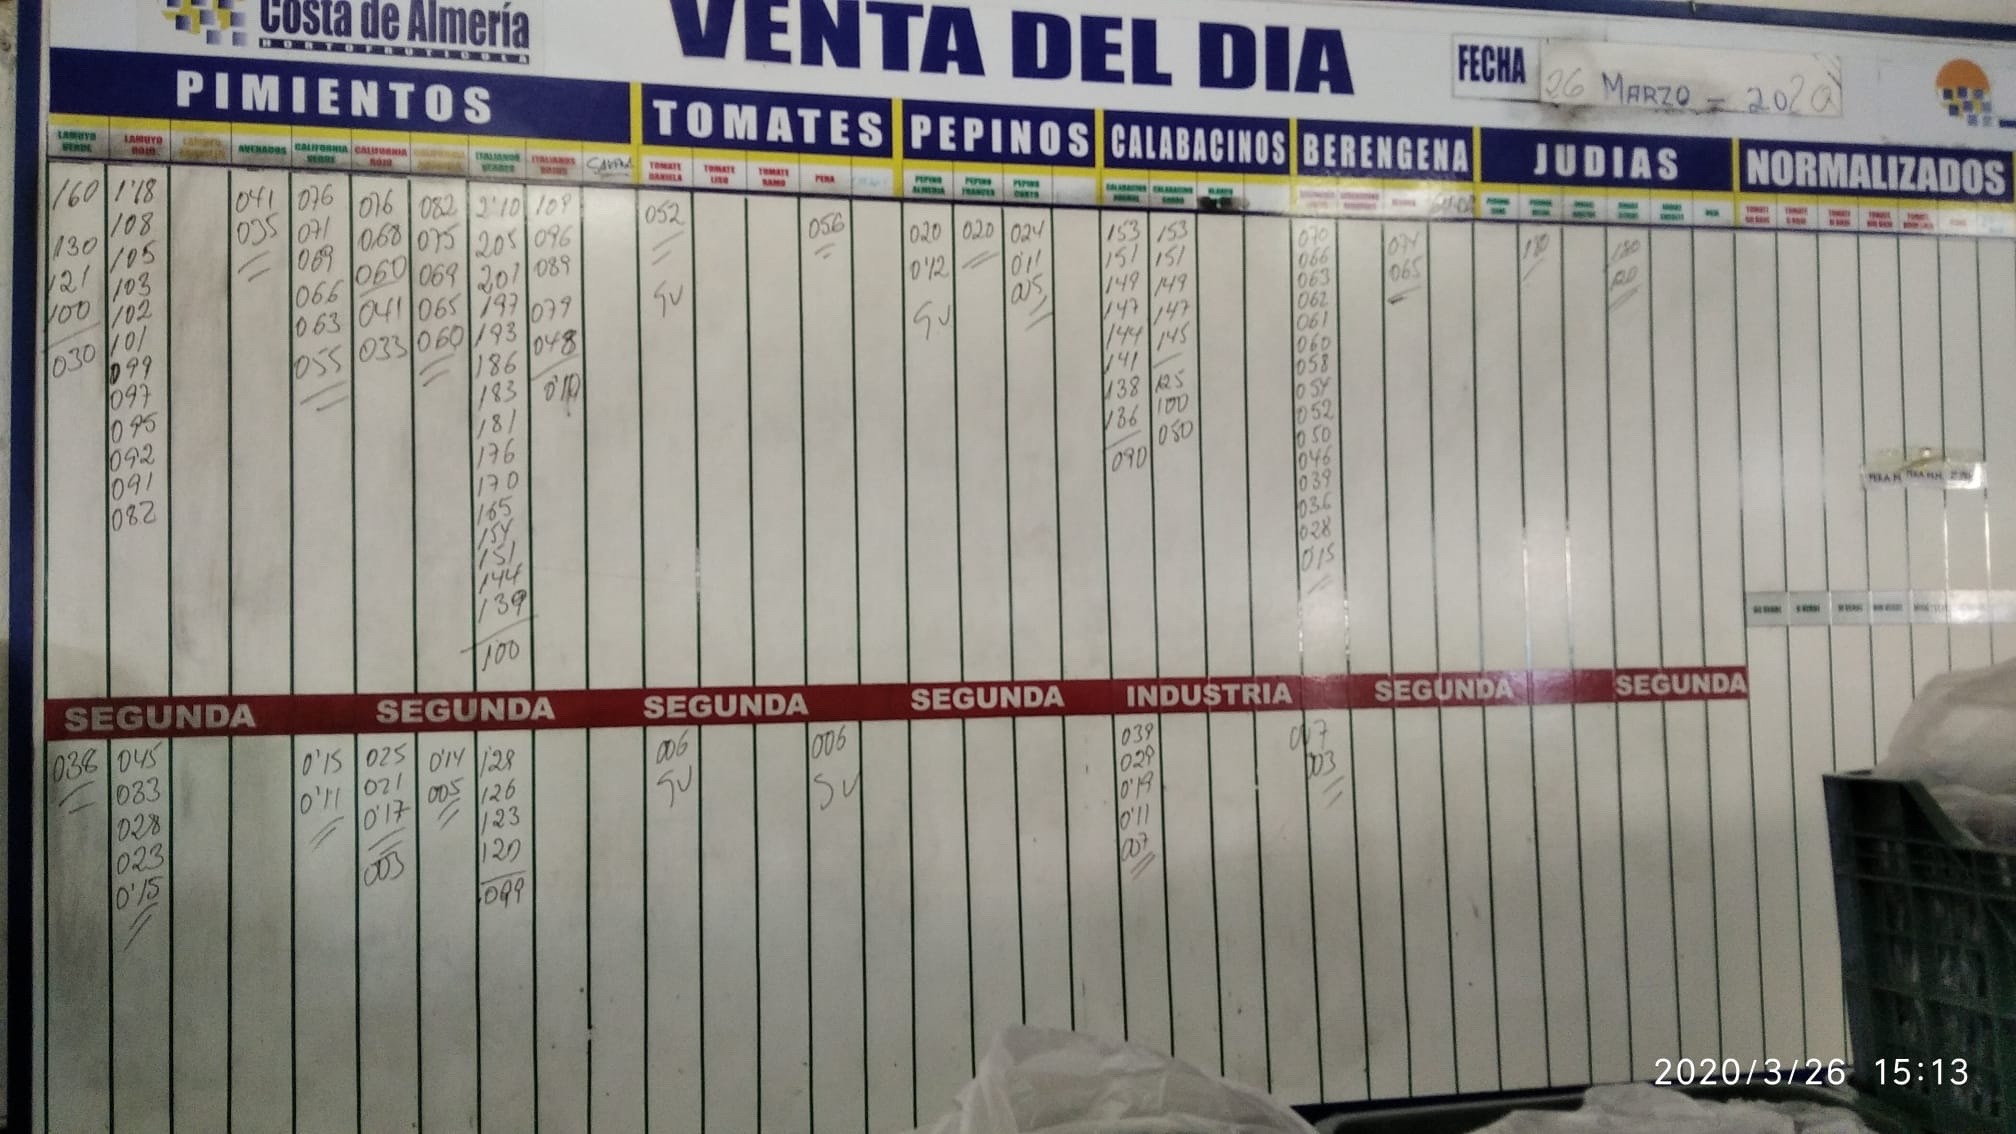 Costa de Almería
HORTOFRUTICOLA
VENTA DEL DIA
FECHA
26 MARZO - 2020
PIMIENTOS
TOMATES
PEPINOS
CALABACINOS
BERENGENA
JUDIAS
NORMALIZADOS
LAMUYO VERDE
160
130
121
100
030
LAMUYO ROJO
1'18
108
105
103
102
101
099
097
095
092
091
082
AVERADOS
041
035
CALIFORNIA VERDE
076
071
069
066
063
055
CALIFORNIA ROJO
076
068
060
041
033
082
075
069
065
060
ITALIANOS VERDES
2'10
205
201
197
193
186
183
181
176
170
165
154
151
144
139
100
ITALIANOS ROJOS
109
096
089
079
048
TOMATE DANIELA
052
SU
TOMATE LISO
TOMATE RAMO
PERA
056
PEPINO ALMERIA
020
0'12
SU
PEPINO FRANCES
020
PEPINO CORTO
024
011
005
153
151
149
147
144
141
138
136
090
CALABACIN GORDO
153
151
149
147
145
125
100
050
070
066
063
062
061
060
058
054
052
050
046
039
036
028
015
074
065
180
SEGUNDA
SEGUNDA
SEGUNDA
SEGUNDA
INDUSTRIA
SEGUNDA
SEGUNDA
038
045
033
028
023
0'15
0'15
0'11
025
021
0'17
003
0'14
005
128
126
123
120
099
006
SU
006
SU
039
029
0'19
0'11
007
007
003
2020/3/26 15:13